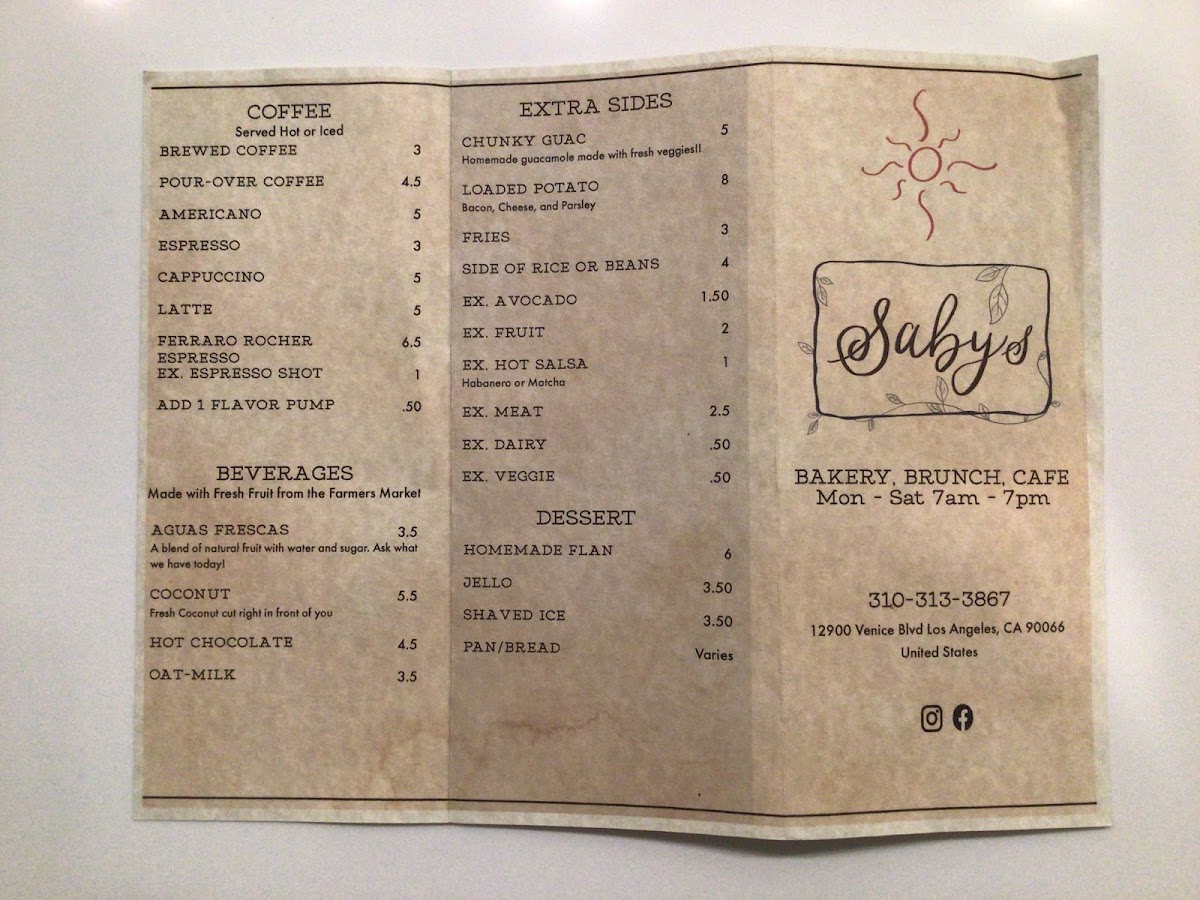 COFFEE
Served Hot or Iced
BREWED COFFEE 3
POUR-OVER COFFEE 4.5
AMERICANO 5
ESPRESSO 3
CAPPUCCINO 5
LATTE 5
FERRARO ROCHER 6.5
ESPRESSO
EX. ESPRESSO SHOT 1
ADD 1 FLAVOR PUMP .50
BEVERAGES
Made with Fresh Fruit from the Farmers Market
AGUAS FRESCAS 3.5
A blend of natural fruit with water and sugar. Ask what
we have today!
COCONUT 5.5
Fresh Coconut cut right in front of you
HOT CHOCOLATE 4.5
OAT-MILK 3.5
EXTRA SIDES
CHUNKY GUAC 5
Homemade guacamole made with fresh veggies!!
LOADED POTATO 8
Bacon, Cheese, and Parsley
FRIES 3
SIDE OF RICE OR BEANS 4
EX. AVOCADO 1.50
EX. FRUIT 2
EX. HOT SALSA 1
Habanero or Matcha
EX. MEAT 2.5
EX. DAIRY .50
EX. VEGGIE .50
DESSERT
HOMEMADE FLAN 6
JELLO 3.50
SHAVED ICE 3.50
PAN/BREAD Varies
Saby's
BAKERY, BRUNCH, CAFE
Mon - Sat 7am - 7pm
310-313-3867
12900 Venice Blvd Los Angeles, CA 90066
United States